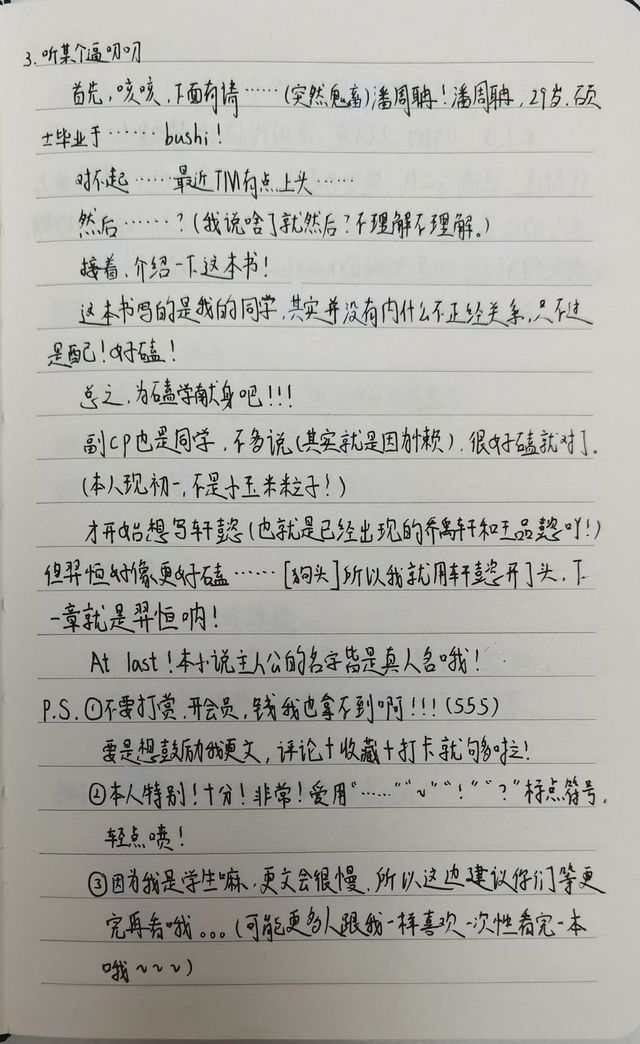 3. 听某个逼叨叨
首先，咳咳，下面有请……(突然鬼畜)潘周聃！潘周聃，29岁，硕
士毕业于…… bushi！
对不起……最近TM有点上头……
然后……？(我说啥了就然后？不理解不理解。)
接着，介绍一下这本书！
这本书写的是我的同学，其实并没有内什么不正经关系，只不过
是配！好磕！
总之，为磕学献身吧！！！
副CP也是同学，不多说(其实就是因为懒)，很好磕就对了。
(本人现初一，不是小玉米粒子！)
才开始想写轩懿(也就是已经出现的乔禹轩和王品懿吖！)
但羿恒好像更好磕……[狗头]所以我就用轩懿开了头，下
一章就是羿恒呐！
At last！本小说主人公的名字皆是真人名哦！
P.S. ①不要打赏、开会员，钱我也拿不到啊！！！(555)
要是想鼓励我更文，评论+收藏+打卡就够啦！
②本人特别！十分！非常！爱用“……”“~”“！”“？”标点符号，
轻点喷！
③因为我是学生嘛，更文会很慢，所以这边建议你们等更
完再看哦。。。(可能更多人跟我一样喜欢一次性看完一本
哦~~~)